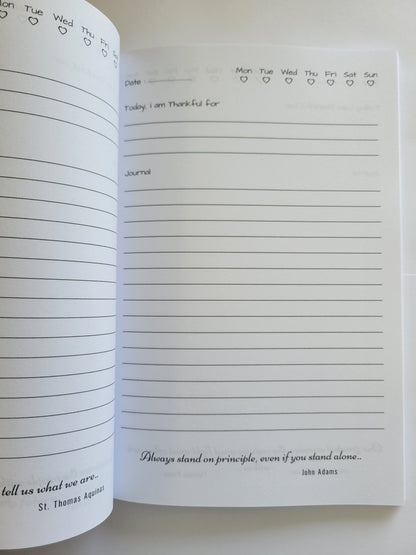 Mon Tue Wed Thu Fri
tell us what we are..
St. Thomas Aquinas
Mon Tue Wed Thu Fri Sat Sun
Date :
Today, i am Thankful for
Journal
Always stand on principle, even if you stand alone..
John Adams